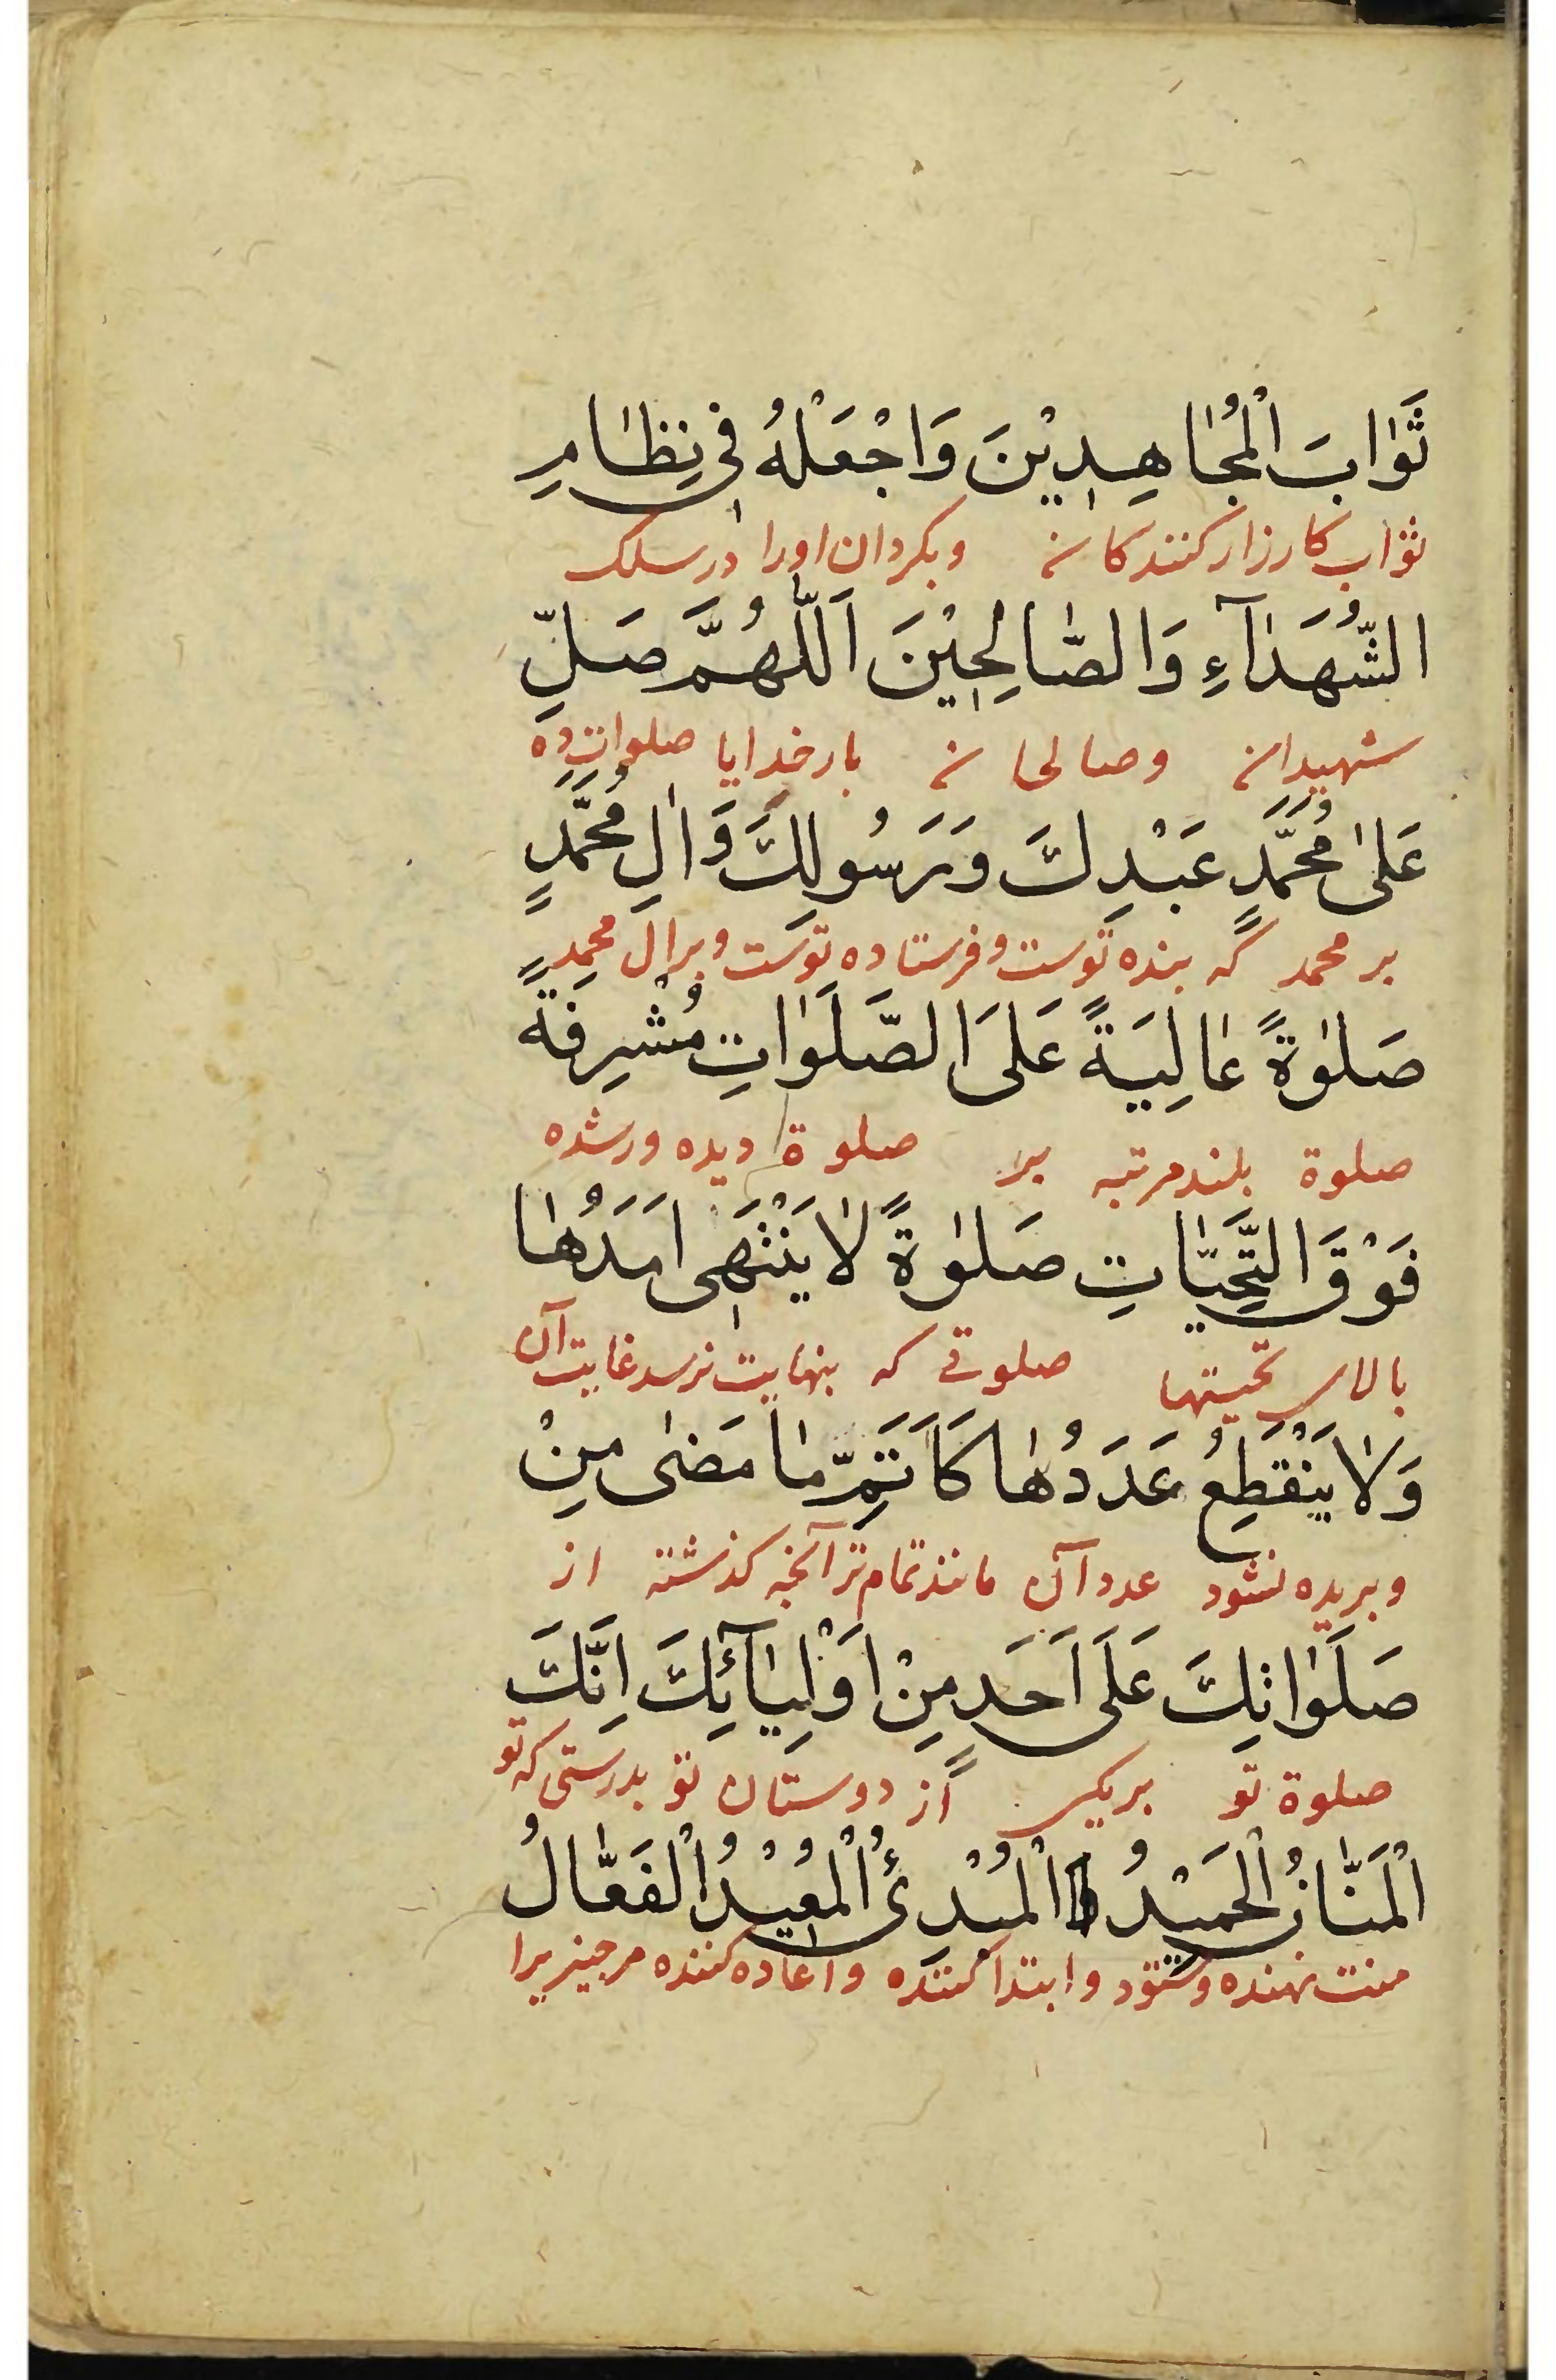 ثَوٰابَ الْمُجٰاهِدِيْنَ وَاجْعَلْهُ فِي نِظٰامِ
ثواب كارزار كنندكان وبكردان اورا درسلك
الشُّهَدٰآءِ وَالصّٰالِحِيْنَ اَللّٰهُمَّ صَلِّ
شهيدان وصالحان بارخدايا صلوات ده
عَلىٰ مُحَمَّدٍ عَبْدِكَ وَرَسُولِكَ وَاٰلِ مُحَمَّدٍ
بر محمد كه بنده توست وفرستاده توست وبرال محمد
صَلوٰةً عٰالِيَةً عَلَى الصَّلَوٰاتِ مُشْرِفَةً
صلوة بلند مرتبه بر صلوة ديده ورشده
فَوْقَ التَّحِيّٰاتِ صَلوٰةً لٰا يَنْتَهِي اَمَدُهٰا
بالاى تحيتها صلوتى كه بنهايت نرسد غايت آن
وَلٰا يَنْقَطِعُ عَدَدُهٰا كَاَتَمِّ مٰا مَضىٰ مِنْ
وبريده نشود عدد آن مانند تمام تر آنچه كذشته از
صَلَوٰاتِكَ عَلَى اَحَدٍ مِنْ اَوْلِيٰآئِكَ اِنَّكَ
صلوة تو بر يكى از دوستان تو بدرستى كه تو
الْمَنّٰانُ الْحَمِيْدُ الْمُبْدِئُ الْمُعِيْدُ الْفَعّٰالُ
منت نهنده وستود وابتدا كننده واعاده كننده هرچيزيرا